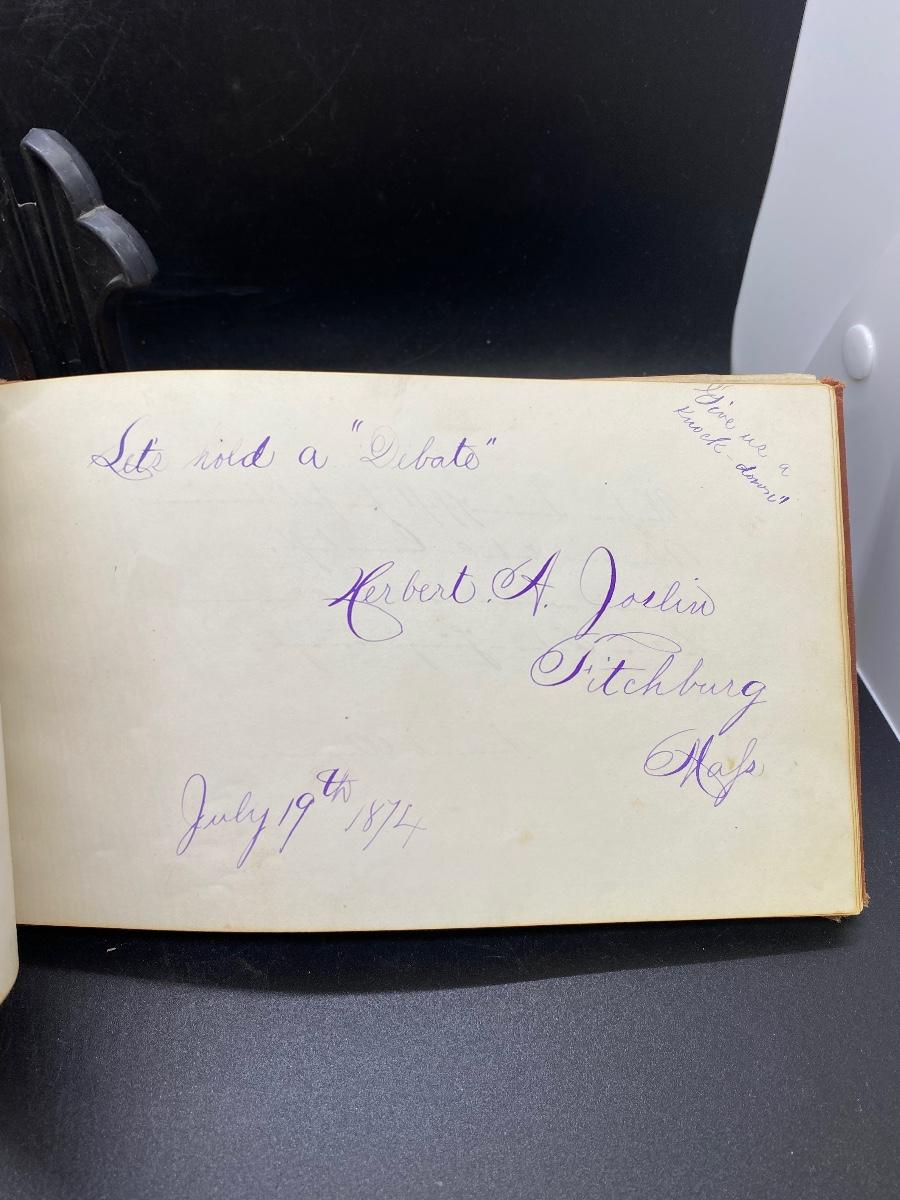 Let's hold a "Debate"
"Give us a
Knock-down"
Herbert. A. Joslin
Fitchburg
Mass
July 19th 1874